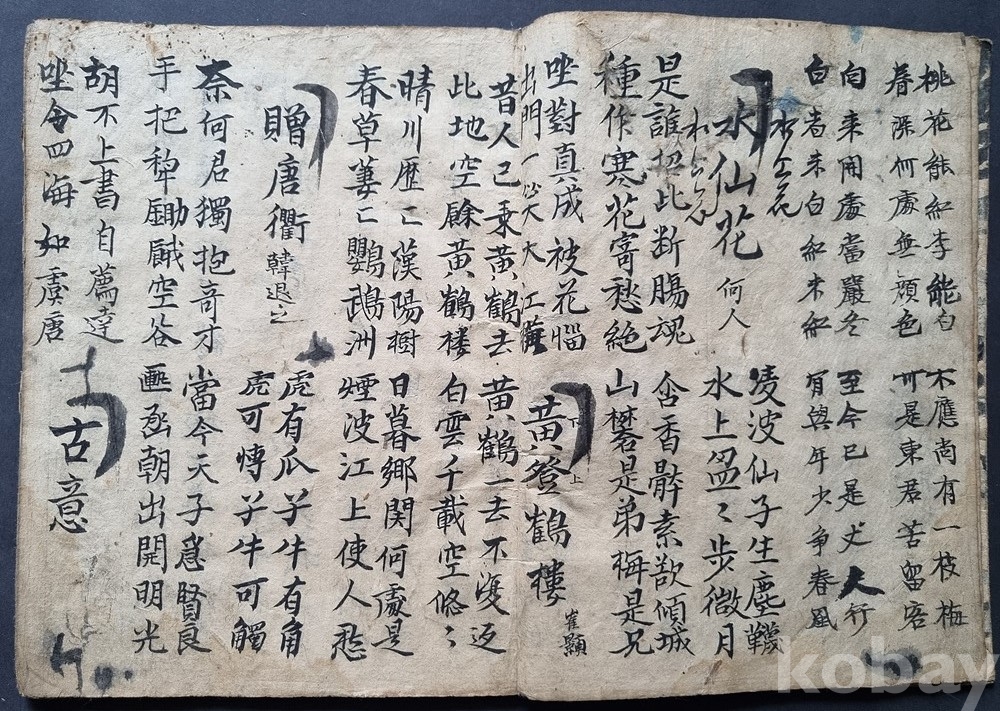 桃花能紅李能白
春深何處無顏色
不應尚有一枝梅
可是東君苦留客
向來開處當嚴冬
白者未白紅未紅
至今已是丈人行
肯與年少爭春風
水仙花 何人
凌波仙子生塵韈
水上盈〻步微月
是誰招此断腸魂
種作寒花寄愁絶
含香骵素欲傾城
山礬是弟梅是兄
坐對真成被花惱
出門一笑大江
黃登鶴樓 崔顥
上
昔人已乘黃鶴去
此地空餘黃鶴楼
黃鶴一去不復返
白雲千載空悠〻
晴川歷〻漢陽樹
春草萋〻鸚鵡洲
日暮鄉関何處是
煙波江上使人愁
贈唐衢 韓退之
虎有爪兮牛有角
虎可慱兮牛可觸
奈何君獨抱奇才
手把犂鋤餓空谷
當今天子急賢良
匭函朝出開明光
胡不上書自薦達
坐令四海如虞唐
古意
kobay